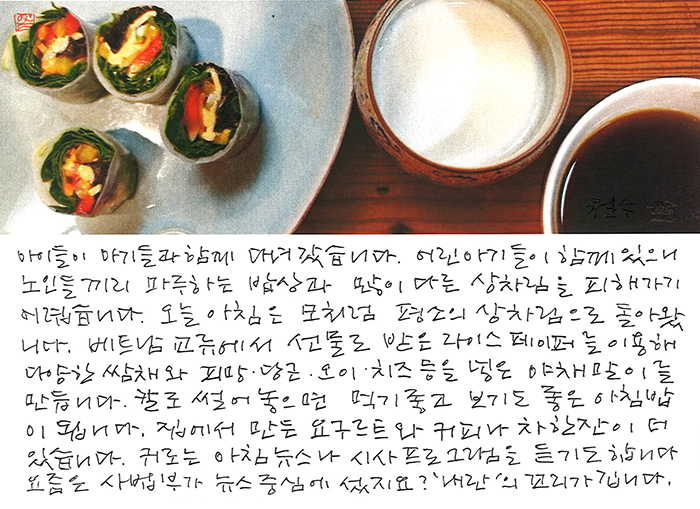 아이들이 아기들과 함께 다녀 갔습니다. 어린아기들이 함께 있으니
노인들끼리 마주하는 밥상과 많이 다른 상차림을 피해가기
어렵습니다. 오늘 아침은 모처럼 평소의 상차림으로 돌아왔
니다. 베트남 교류에서 선물로 받은 라이스페이퍼를 이용해
다양한 쌈채와 피망·당근·오이·치즈 등을 넣은 야채말이를
만듭니다. 칼로 썰어 놓으면 먹기 좋고 보기도 좋은 아침밥
이 됩니다. 집에서 만든 요구르트와 커피나 차 한잔이 더
있습니다. 귀로는 아침뉴스나 시사프로그램을 듣기도 합니다
요즘은 사법부가 뉴스 중심에 섰지요? '내란'의 꼬리가 깁니다.